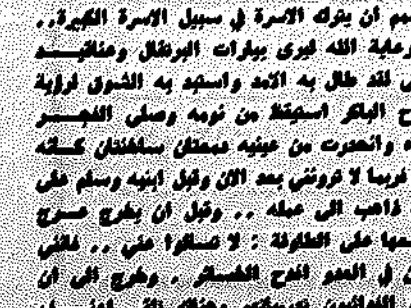 هم أن يترك الاسرة في سبيل الاسرة الكبيرة..
رعاية الله ليرى بيارات البرتقال وعناقيـــد
لقد طال به الامد واستبد به الشوق لرؤية
ح الباكر استيقظ من نومه وصلى الفجـــر
ه وانحدرت من عينيه دمعتان ساخنتان كــانه
فربما لا تروننى بعد الان وقبل ابنيه وسلم على
ذاهب الى عمله .. وقبل أن يخرج عـــرج
على الطاولة : لا تسألوا عني .. فانني
في العدو افدح الخسائر . وخرج الى أن